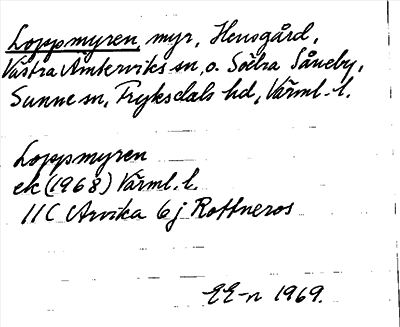 Loppmyren, myr, Hensgård,
Västra Ämterviks sn, o. Södra Såneby,
Sunne sn, Fryksdals hd, Värml. l.
Loppmyren
ek (1968) Värml. l.
11C Arvika 6j Rottneros
EE-n 1969.